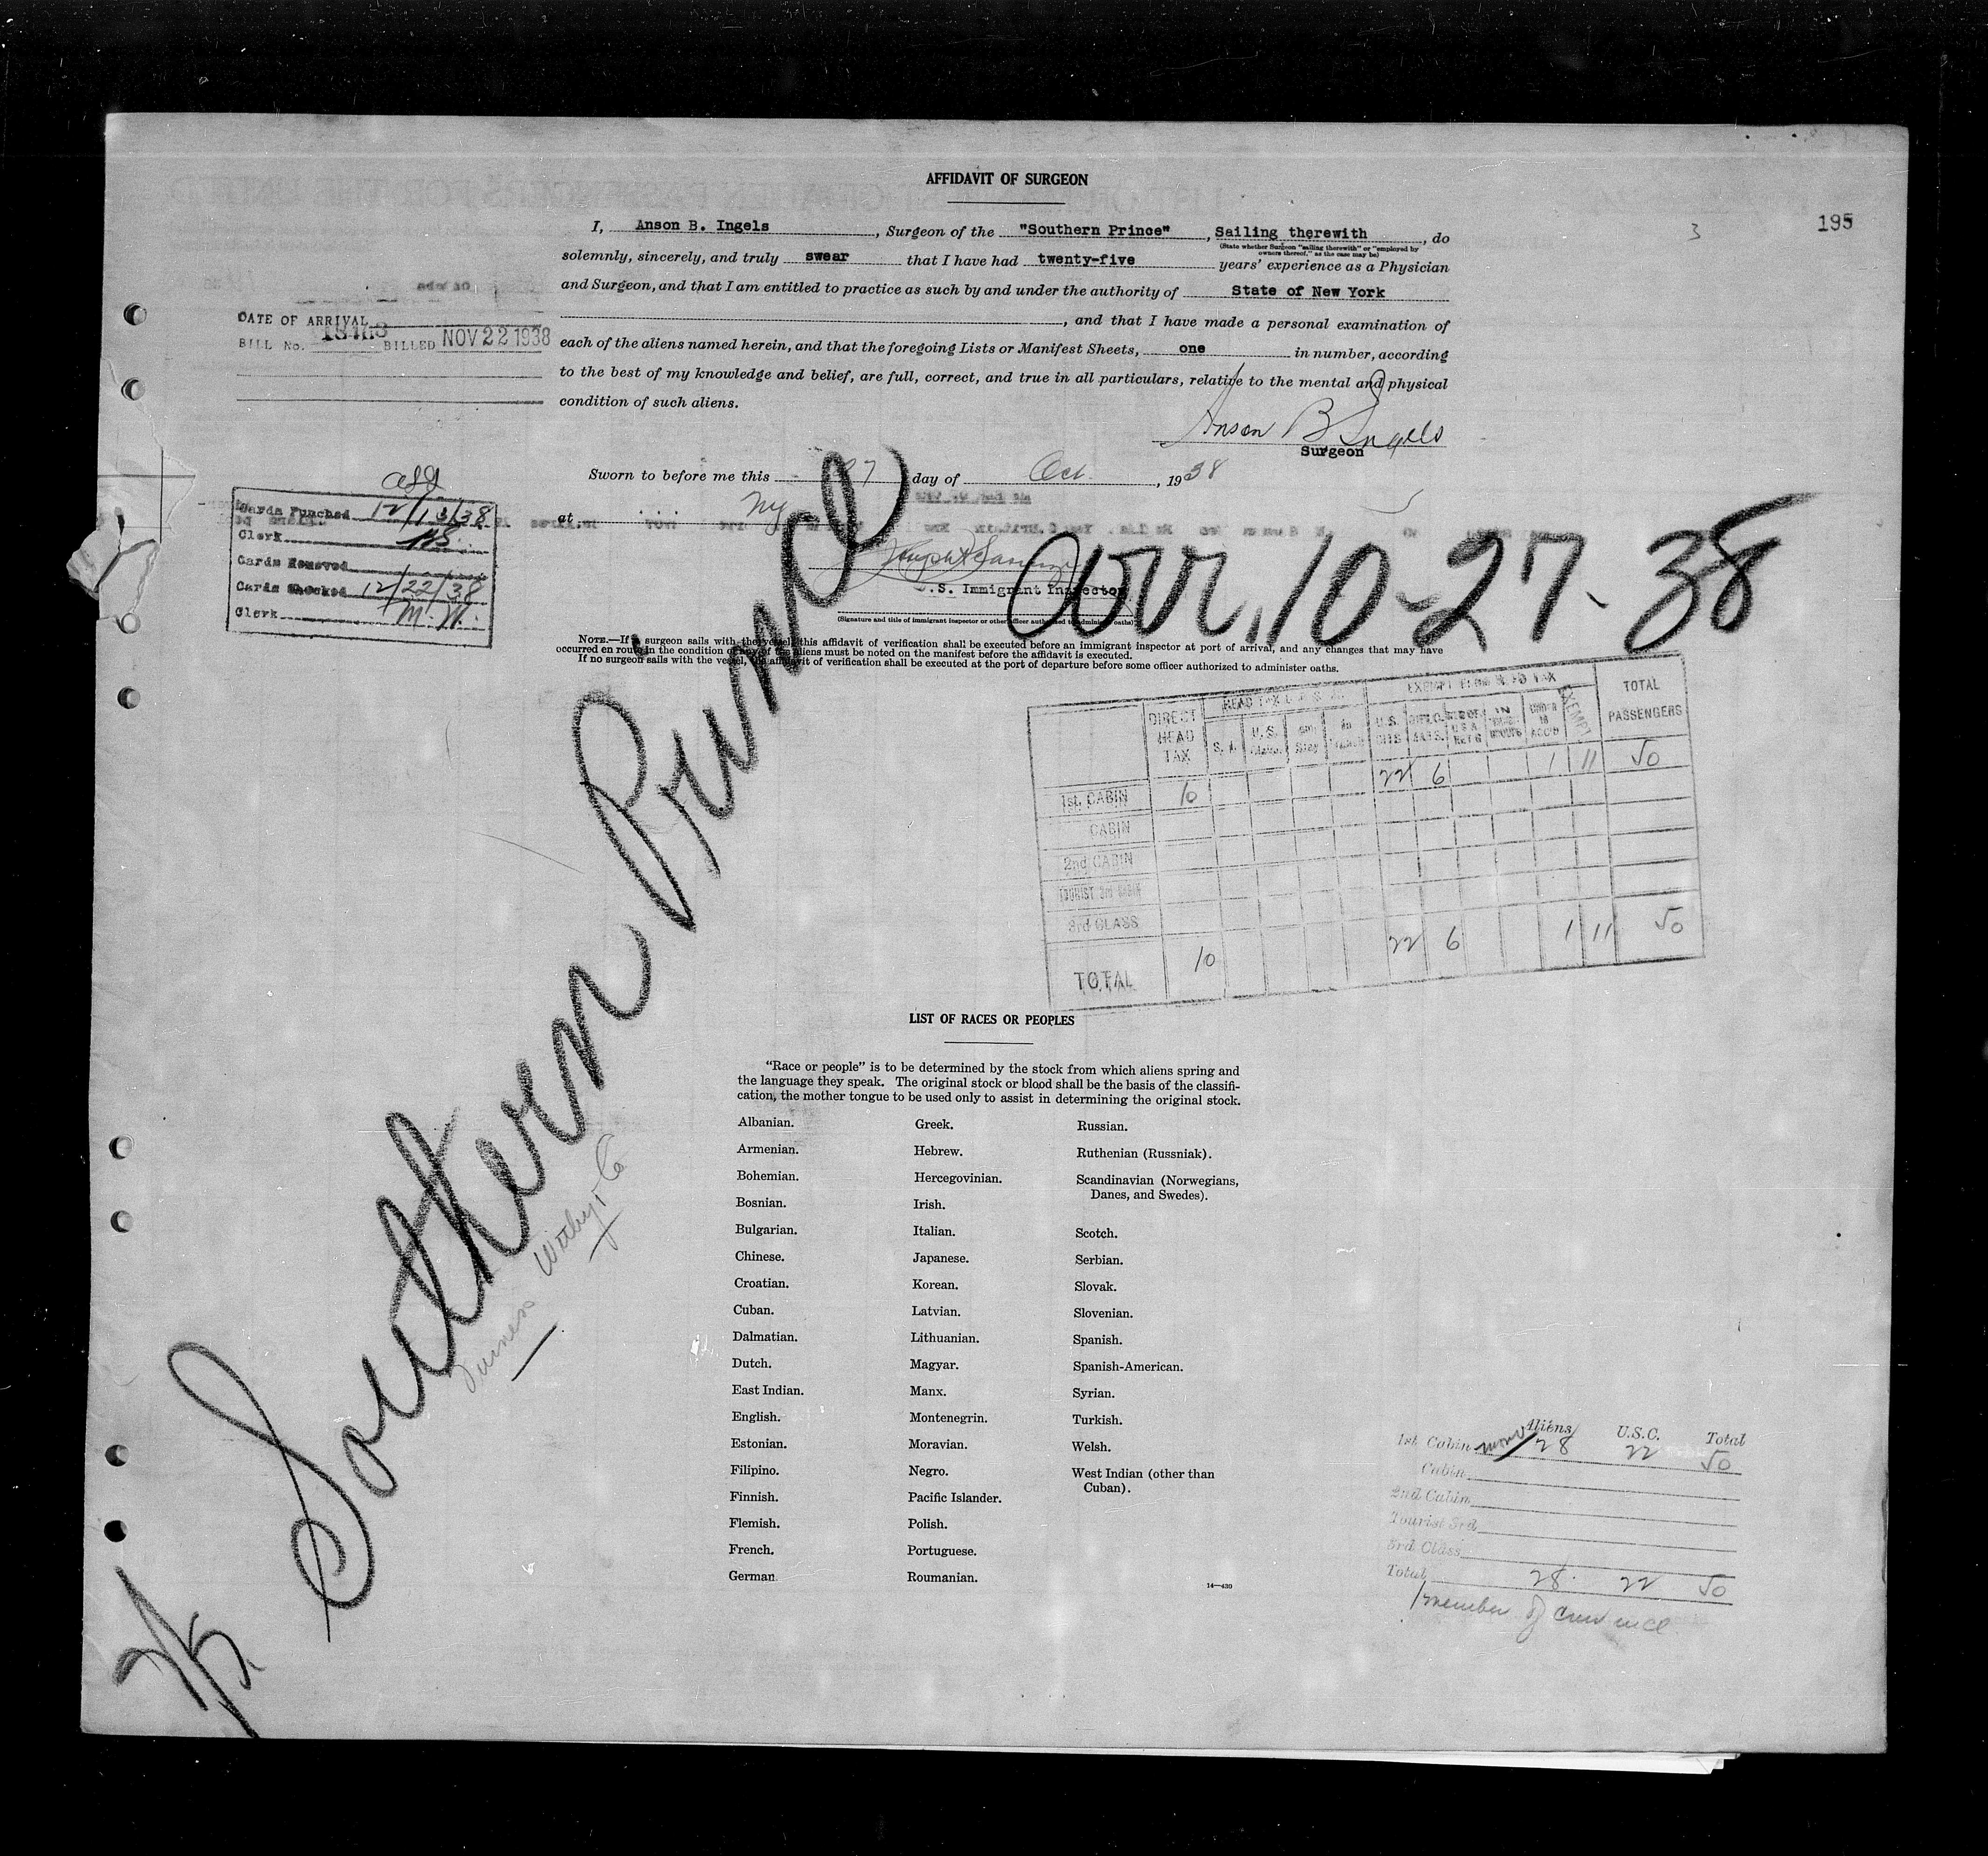 AFFIDAVIT OF SURGEON
195
3
I, Anson B. Ingels, Surgeon of the "Southern Prince", Sailing therewith, do
(State whether Surgeon "sailing therewith" or "employed by owners thereof," as the case may be)
solemnly, sincerely, and truly swear that I have had twenty-five years' experience as a Physician
and Surgeon, and that I am entitled to practice as such by and under the authority of State of New York
, and that I have made a personal examination of
each of the aliens named herein, and that the foregoing Lists or Manifest Sheets, one in number, according
to the best of my knowledge and belief, are full, correct, and true in all particulars, relative to the mental and physical
condition of such aliens.
Anson B Ingels
Surgeon
DATE OF ARRIVAL
BILL No. BILLED NOV 22 1938
Sworn to before me this 27 day of Oct., 1938
at NY
U.S. Immigrant Inspector
(Signature and title of immigrant inspector or other officer authorized to administer oaths)
Cards Punched 12/13/38
Clerk
Cards Removed
Cards Checked 12/22/38
Clerk M.W.
Arr. 10-27-38
NOTE.—If a surgeon sails with the vessel, this affidavit of verification shall be executed before an immigrant inspector at port of arrival, and any changes that may have
occurred en route in the condition of any of the aliens must be noted on the manifest before the affidavit is executed.
If no surgeon sails with the vessel, the affidavit of verification shall be executed at the port of departure before some officer authorized to administer oaths.
Southern Prince
Furness Withy & Co
DIRECT HEAD TAX
EXEMPT FROM HEAD TAX
TOTAL PASSENGERS
1st. CABIN 10 22 6 1 11 50
CABIN
2nd CABIN
TOURIST 3rd CABIN
3rd CLASS
TOTAL 10 22 6 1 11 50
LIST OF RACES OR PEOPLES
"Race or people" is to be determined by the stock from which aliens spring and
the language they speak. The original stock or blood shall be the basis of the classifi-
cation, the mother tongue to be used only to assist in determining the original stock.
Albanian.
Armenian.
Bohemian.
Bosnian.
Bulgarian.
Chinese.
Croatian.
Cuban.
Dalmatian.
Dutch.
East Indian.
English.
Estonian.
Filipino.
Finnish.
Flemish.
French.
German.
Greek.
Hebrew.
Hercegovinian.
Irish.
Italian.
Japanese.
Korean.
Latvian.
Lithuanian.
Magyar.
Manx.
Montenegrin.
Moravian.
Negro.
Pacific Islander.
Polish.
Portuguese.
Roumanian.
Russian.
Ruthenian (Russniak).
Scandinavian (Norwegians,
Danes, and Swedes).
Scotch.
Serbian.
Slovak.
Slovenian.
Spanish.
Spanish-American.
Syrian.
Turkish.
Welsh.
West Indian (other than
Cuban).
14—430
Aliens U.S.C. Total
1st Cabin 28 22 50
Cabin
2nd Cabin
Tourist 3rd
3rd Class
Total 28 22 50
1 member of crew incl.